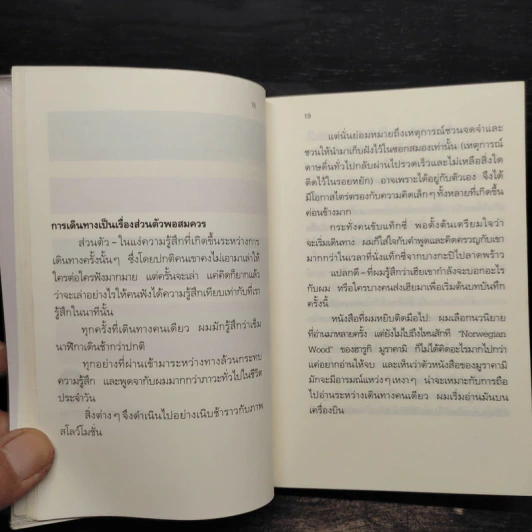 การเดินทางเป็นเรื่องส่วนตัวพอสมควร
ส่วนตัว – ในแง่ความรู้สึกที่เกิดขึ้นระหว่างการ
เดินทางครั้งนั้นๆ ซึ่งโดยปกติคนเขาคงไม่เอามาเล่าให้
ใครต่อใครฟังมากมาย แต่ครั้นจะเล่า แค่คิดก็ยากแล้ว
ว่าจะเล่าอย่างไรให้คนฟังได้ความรู้สึกเทียบเท่ากับที่เรา
รู้สึกในนาทีนั้น
ทุกครั้งที่เดินทางคนเดียว ผมมักรู้สึกว่าเข็ม
นาฬิกาเดินช้ากว่าปกติ
ทุกอย่างที่ผ่านเข้ามาระหว่างทางล้วนกระทบ
ความรู้สึก และพูดจากับผมมากกว่าภาวะทั่วไปในชีวิต
ประจำวัน
สิ่งต่างๆ จึงดำเนินไปอย่างเนิบช้าราวกับภาพ
สโลว์โมชั่น
19
แต่นั่นย่อมหมายถึงเหตุการณ์ชวนจดจำและ
ชวนให้นำมาเก็บฝังไว้ในซอกสมองเท่านั้น (เหตุการณ์
ดาษดื่นทั่วไปกลับผ่านไปรวดเร็วและไม่เหลือสิ่งใด
ติดไว้ในรอยหยัก) อาจเพราะได้อยู่กับตัวเอง จึงได้
มีโอกาสไตร่ตรองกับความคิดเล็กๆ ทั้งหลายที่เกิดขึ้น
ค่อนข้างมาก
กระทั่งคนขับแท็กซี่ พอตั้งต้นเตรียมใจว่า
จะเริ่มเดินทาง ผมก็ใส่ใจกับคำพูดและคิดครวญกับเขา
มากกว่าในเวลาที่นั่งแท็กซี่จากบางกะปิไปลาดพร้าว
แปลกดี – ที่ผมรู้สึกว่าเฮียเขากำลังจะบอกอะไร
กับผม หรือใครบางคนส่งเฮียมาเพื่อเริ่มต้นบทบันทึก
ครั้งนี้
หนังสือที่ผมหยิบติดมือไป: ผมเลือกนวนิยาย
ที่อ่านมาหลายครั้ง แต่ยังไม่ไปถึงไหนสักที “Norwegian
Wood” ของฮารูกิ มูราคามิ ก็ไม่ได้คิดอะไรมากไปกว่า
แค่อยากอ่านให้จบ และเห็นว่าตัวหนังสือของมูราคามิ
มักจะมีอารมณ์แหว่งๆ เหงาๆ น่าจะเหมาะกับการถือ
ไปอ่านระหว่างเดินทางคนเดียว ผมเริ่มอ่านมันบน
เครื่องบิน